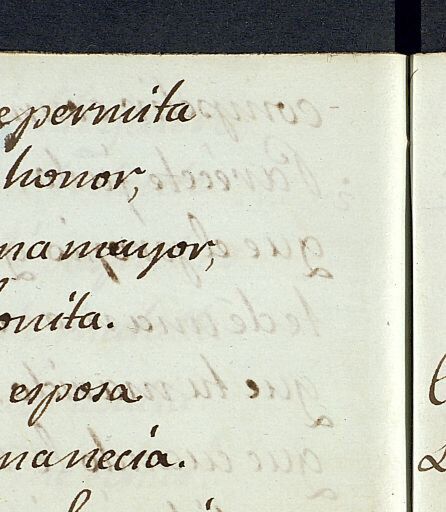 e permita
honor,
na mayor,
onita.
esposa
manecía.